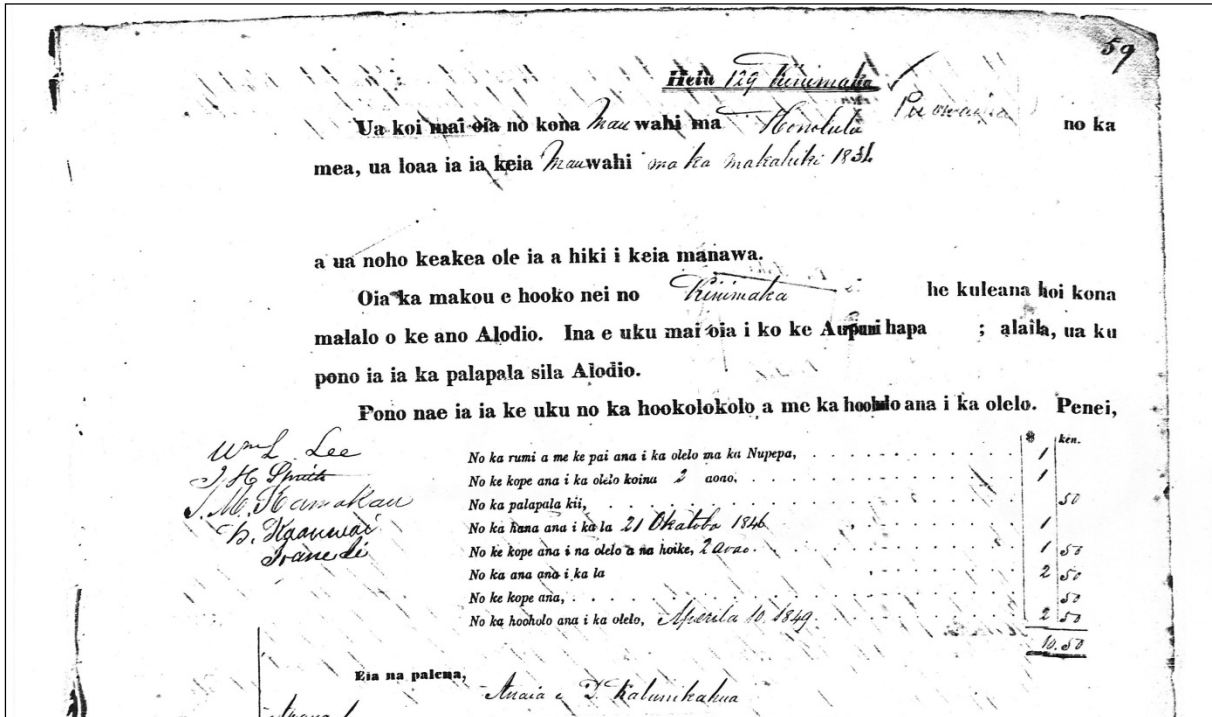 59
Helu 129 Kinimaka
Ua koi mai oia no kona Mau wahi ma Honolulu Puowaina no ka
mea, ua loaa ia ia keia Mau wahi ma ka makahiki 1831.
a ua noho keakea ole ia a hiki i keia manawa.
Oia ka makou e hooko nei no Kinimaka he kuleana hoi kona
malalo o ke ano Alodio. Ina e uku mai oia i ko ke Aupuni hapa ; alaila, ua ku
pono ia ia ka palapala sila Alodio.
Pono nae ia ia ke uku no ka hookolokolo a me ka hooholo ana i ka olelo. Penei,
$ ken.
Wm L. Lee
No ka rumi a me ke pai ana i ka olelo ma ka Nupepa, 1
J. H. Smith
No ke kope ana i ka olelo koina 2 aoao, 1
S. M. Kamakau
No ka palapala kii, 50
No ka hana ana i ka la 21 Okatoba 1846 1
Z. Kaauwai
Ioane Ii
No ke kope ana i na olelo a na hoike, 2 aoao. 1 50
No ka ana ana i ka la 2 50
No ke kope ana, 50
No ka hooholo ana i ka olelo, Aperila 10. 1849. 2 50
10.50
Eia na palena,
Anaia e T. Kalunikahua
Apana 1